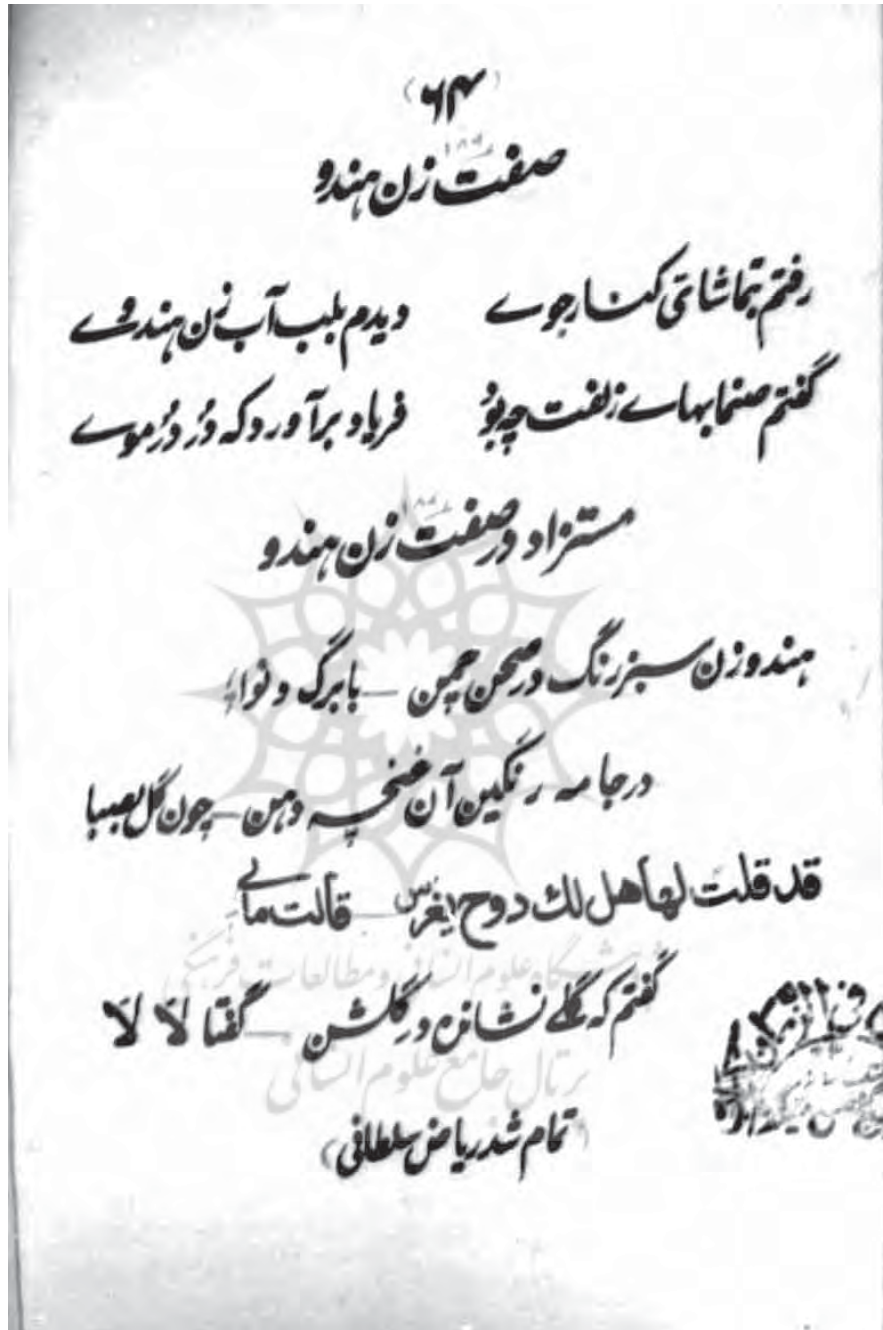 (۶۴)
صفت زن هندو
رفتم بتماشائی کنار جوے دیدم بلب آب زن هندوے
گفتم صنما بہاے زلفت چہ بوُد فریاد برآورد کہ دُر دُر موے
مستزاد در صفت زن ہندو
ہندو زن سبز رنگ در صحن چمن – بابرگ و نوا
در جامہ رنگین آن غنچہ دہن – چون گل بصبا
قد قلت لها هل لك دوح يغرس – قالت مالي
گفتم کہ گلے نشاندہ در گلشن – گفتا لَا لَا
پژوهشگاه علوم انسانی و مطالعات فرهنگی
پرتال جامع علوم انسانی
(تمام شد ریاض سلطانی)